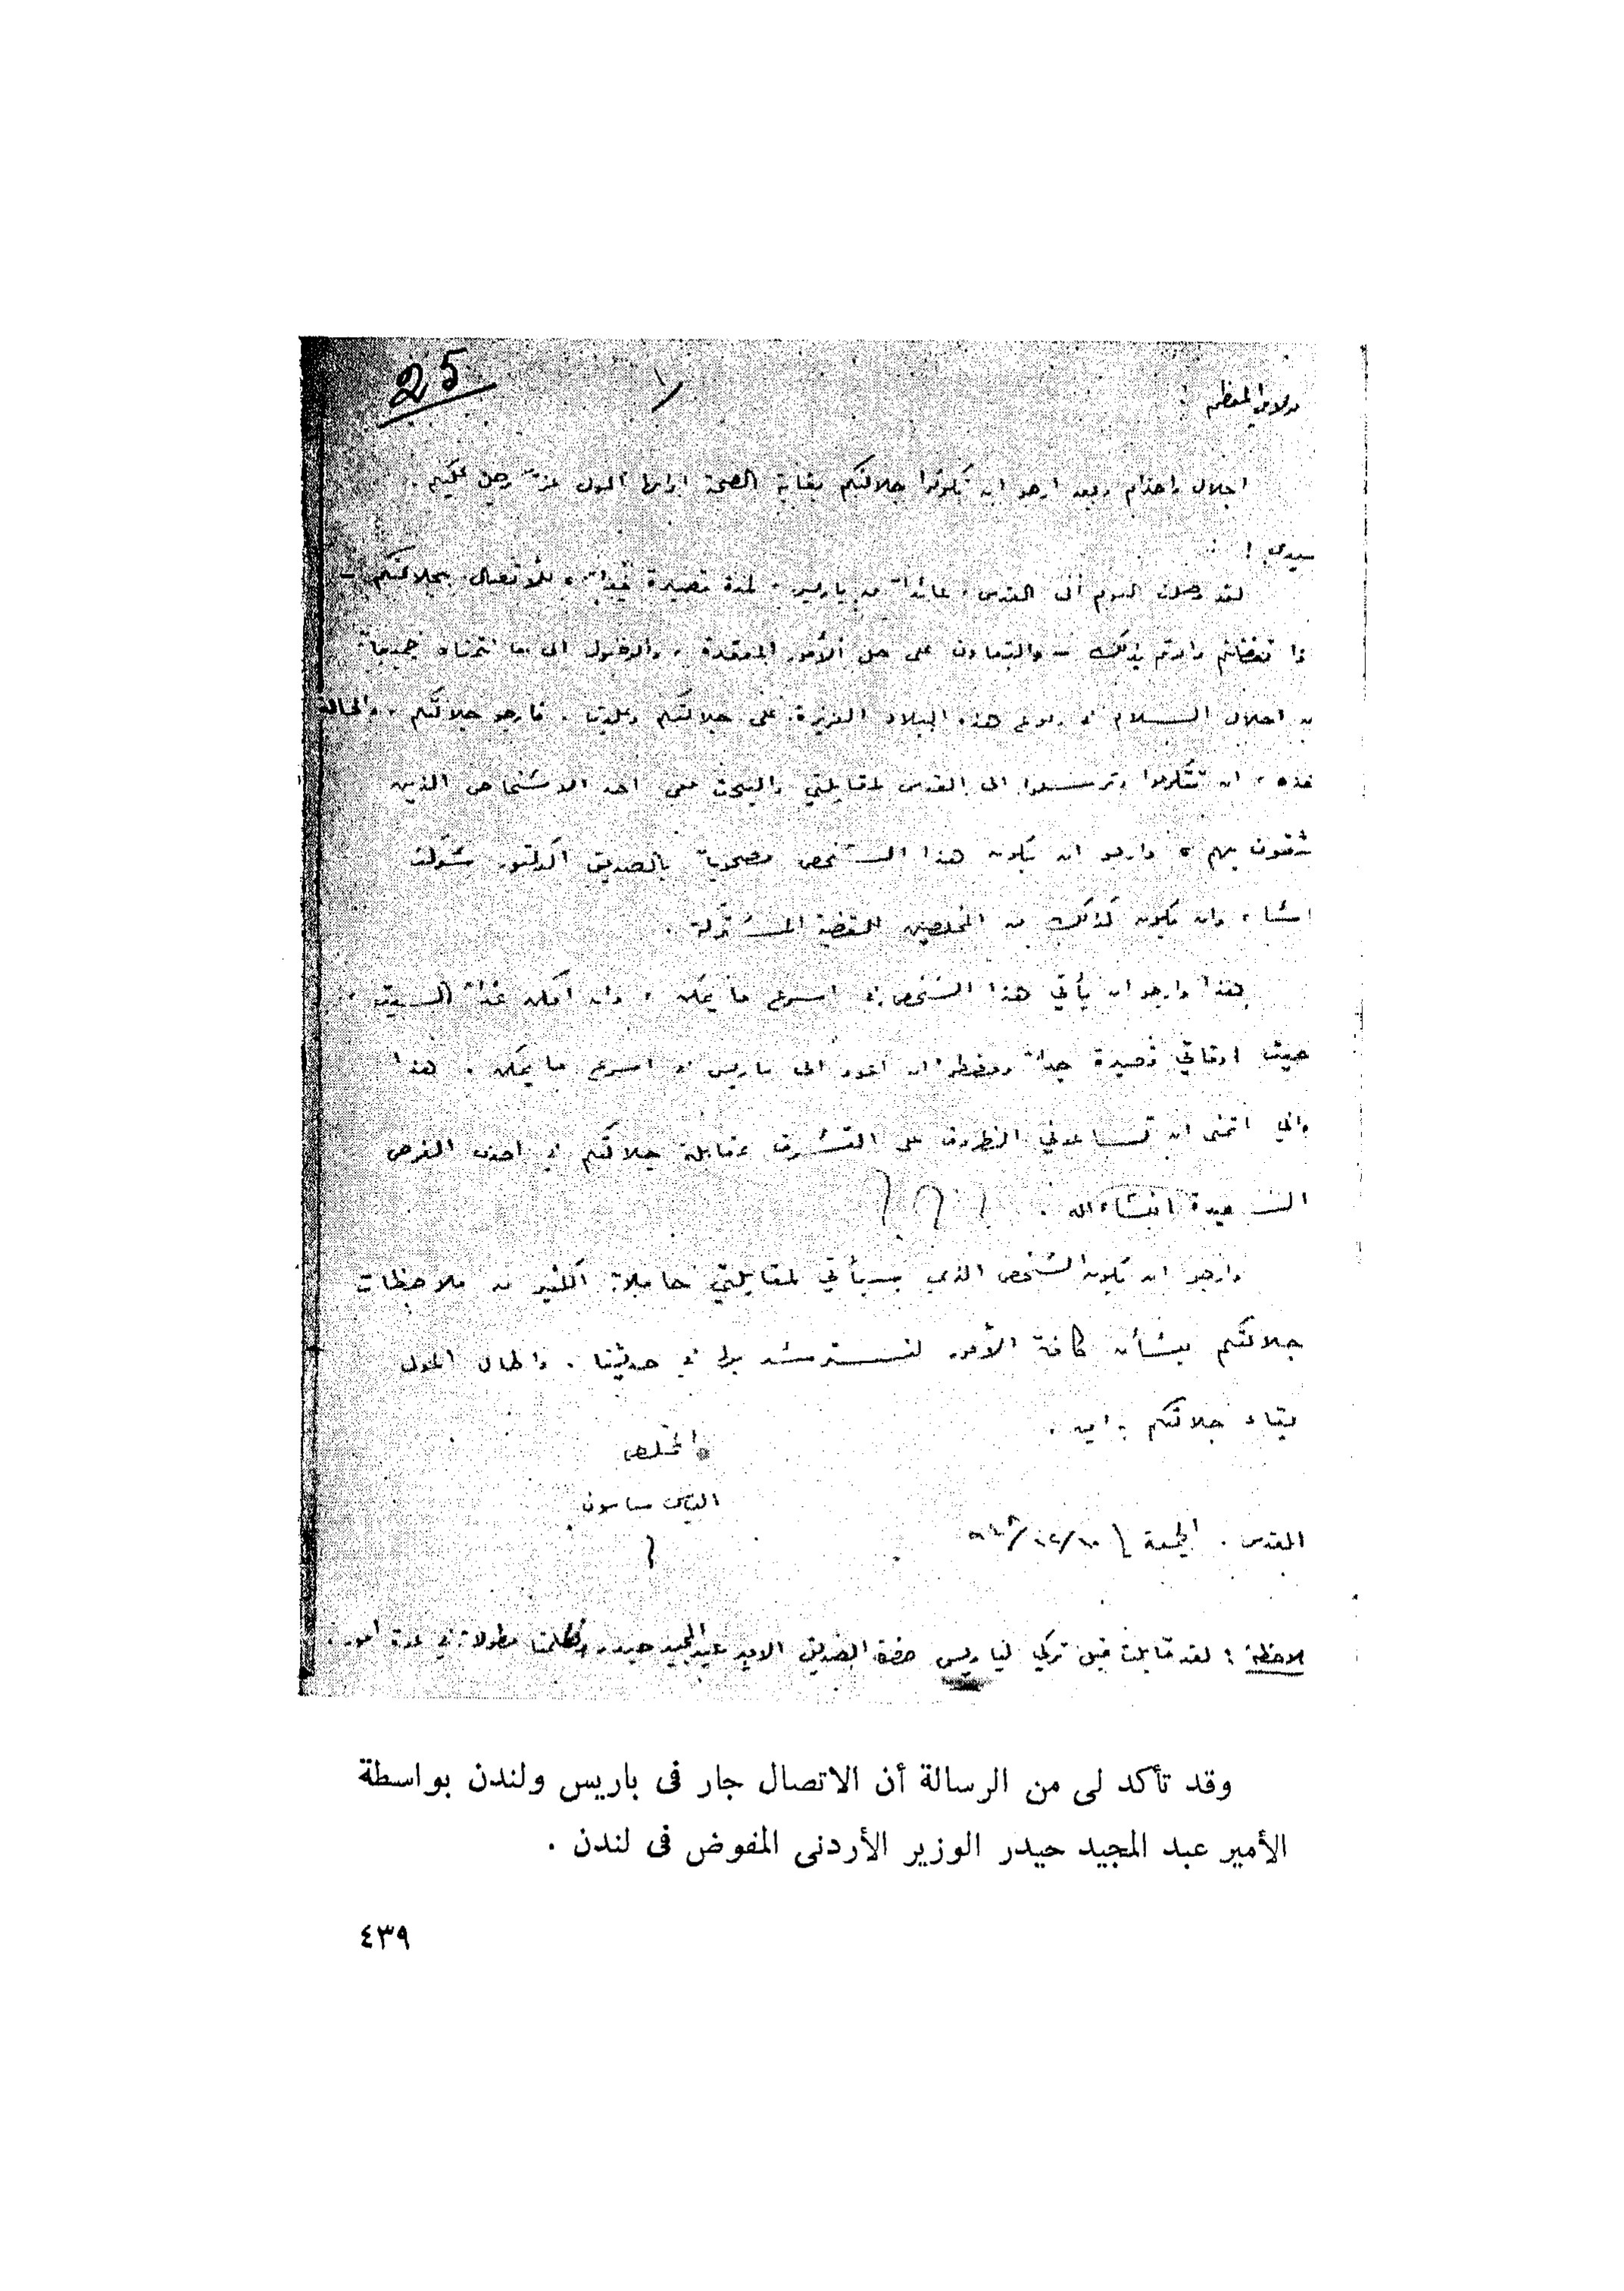 25
مولاي المعظم !
اجلال واحترام وبعد ارجو ان تكونوا جلالتكم بغاية الصحة ادامها المولى عزّ وجل عليكم .
سيدي !
لقد وصلت اليوم الى القدس ، عائداً من باريس ، لمدة قصيرة جداً ، للاتصال بجلالتكم –
اذا تفضلتم وأردتم بذلك – والتعاون على حل الأمور المعقدة ، والوصول الى ما نتمناه جميعاً
من احلال السلام في ربوع هذه البلاد العزيزة على جلالتكم وعلينا . فارجو جلالتكم ، والحالة
هذه ، ان تتكرموا وترسلوا الى القدس لمقابلتي والبحث معي احد الاشخاص الذين
تثقون بهم ، وارجو ان يكون هذا الشخص مصحوباً بالصديق الدكتور شوكت
باشا ، وان يكون كذلك من المخلصين للقضية المشتركة .
هذا وارجو ان يأتي هذا الشخص في اسرع ما يمكن ، وان امكن غداً السبت ،
حيث اوقاتي قصيرة جداً ومضطر ان اعود الى باريس في اسرع ما يمكن . هذا
واني اتمنى ان تساعدني الظروف على التشرف بمقابلة جلالتكم في احدى الفرص
السعيدة انشاء الله .
وارجو ان يكون الشخص الذي سيأتي لمقابلتي حاملاً الكثير من ملاحظات
جلالتكم بشأن كافة الأمور لنسترشد بها في حديثنا . واطال المولى
بقاء جلالتكم ، امين .
المخلص
الياس ساسون
القدس . الجمعة ١٠/١٢/٩٤٨
ملاحظة : لقد قابلت قبل تركي لباريس حضرة الصديق الامير عبد المجيد حيدر وتكلمنا مطولاً في عدة أمور .
وقد تأكد لى من الرسالة أن الاتصال جار فى باريس ولندن بواسطة
الأمير عبد المجيد حيدر الوزير الأردنى المفوض فى لندن .
٤٣٩